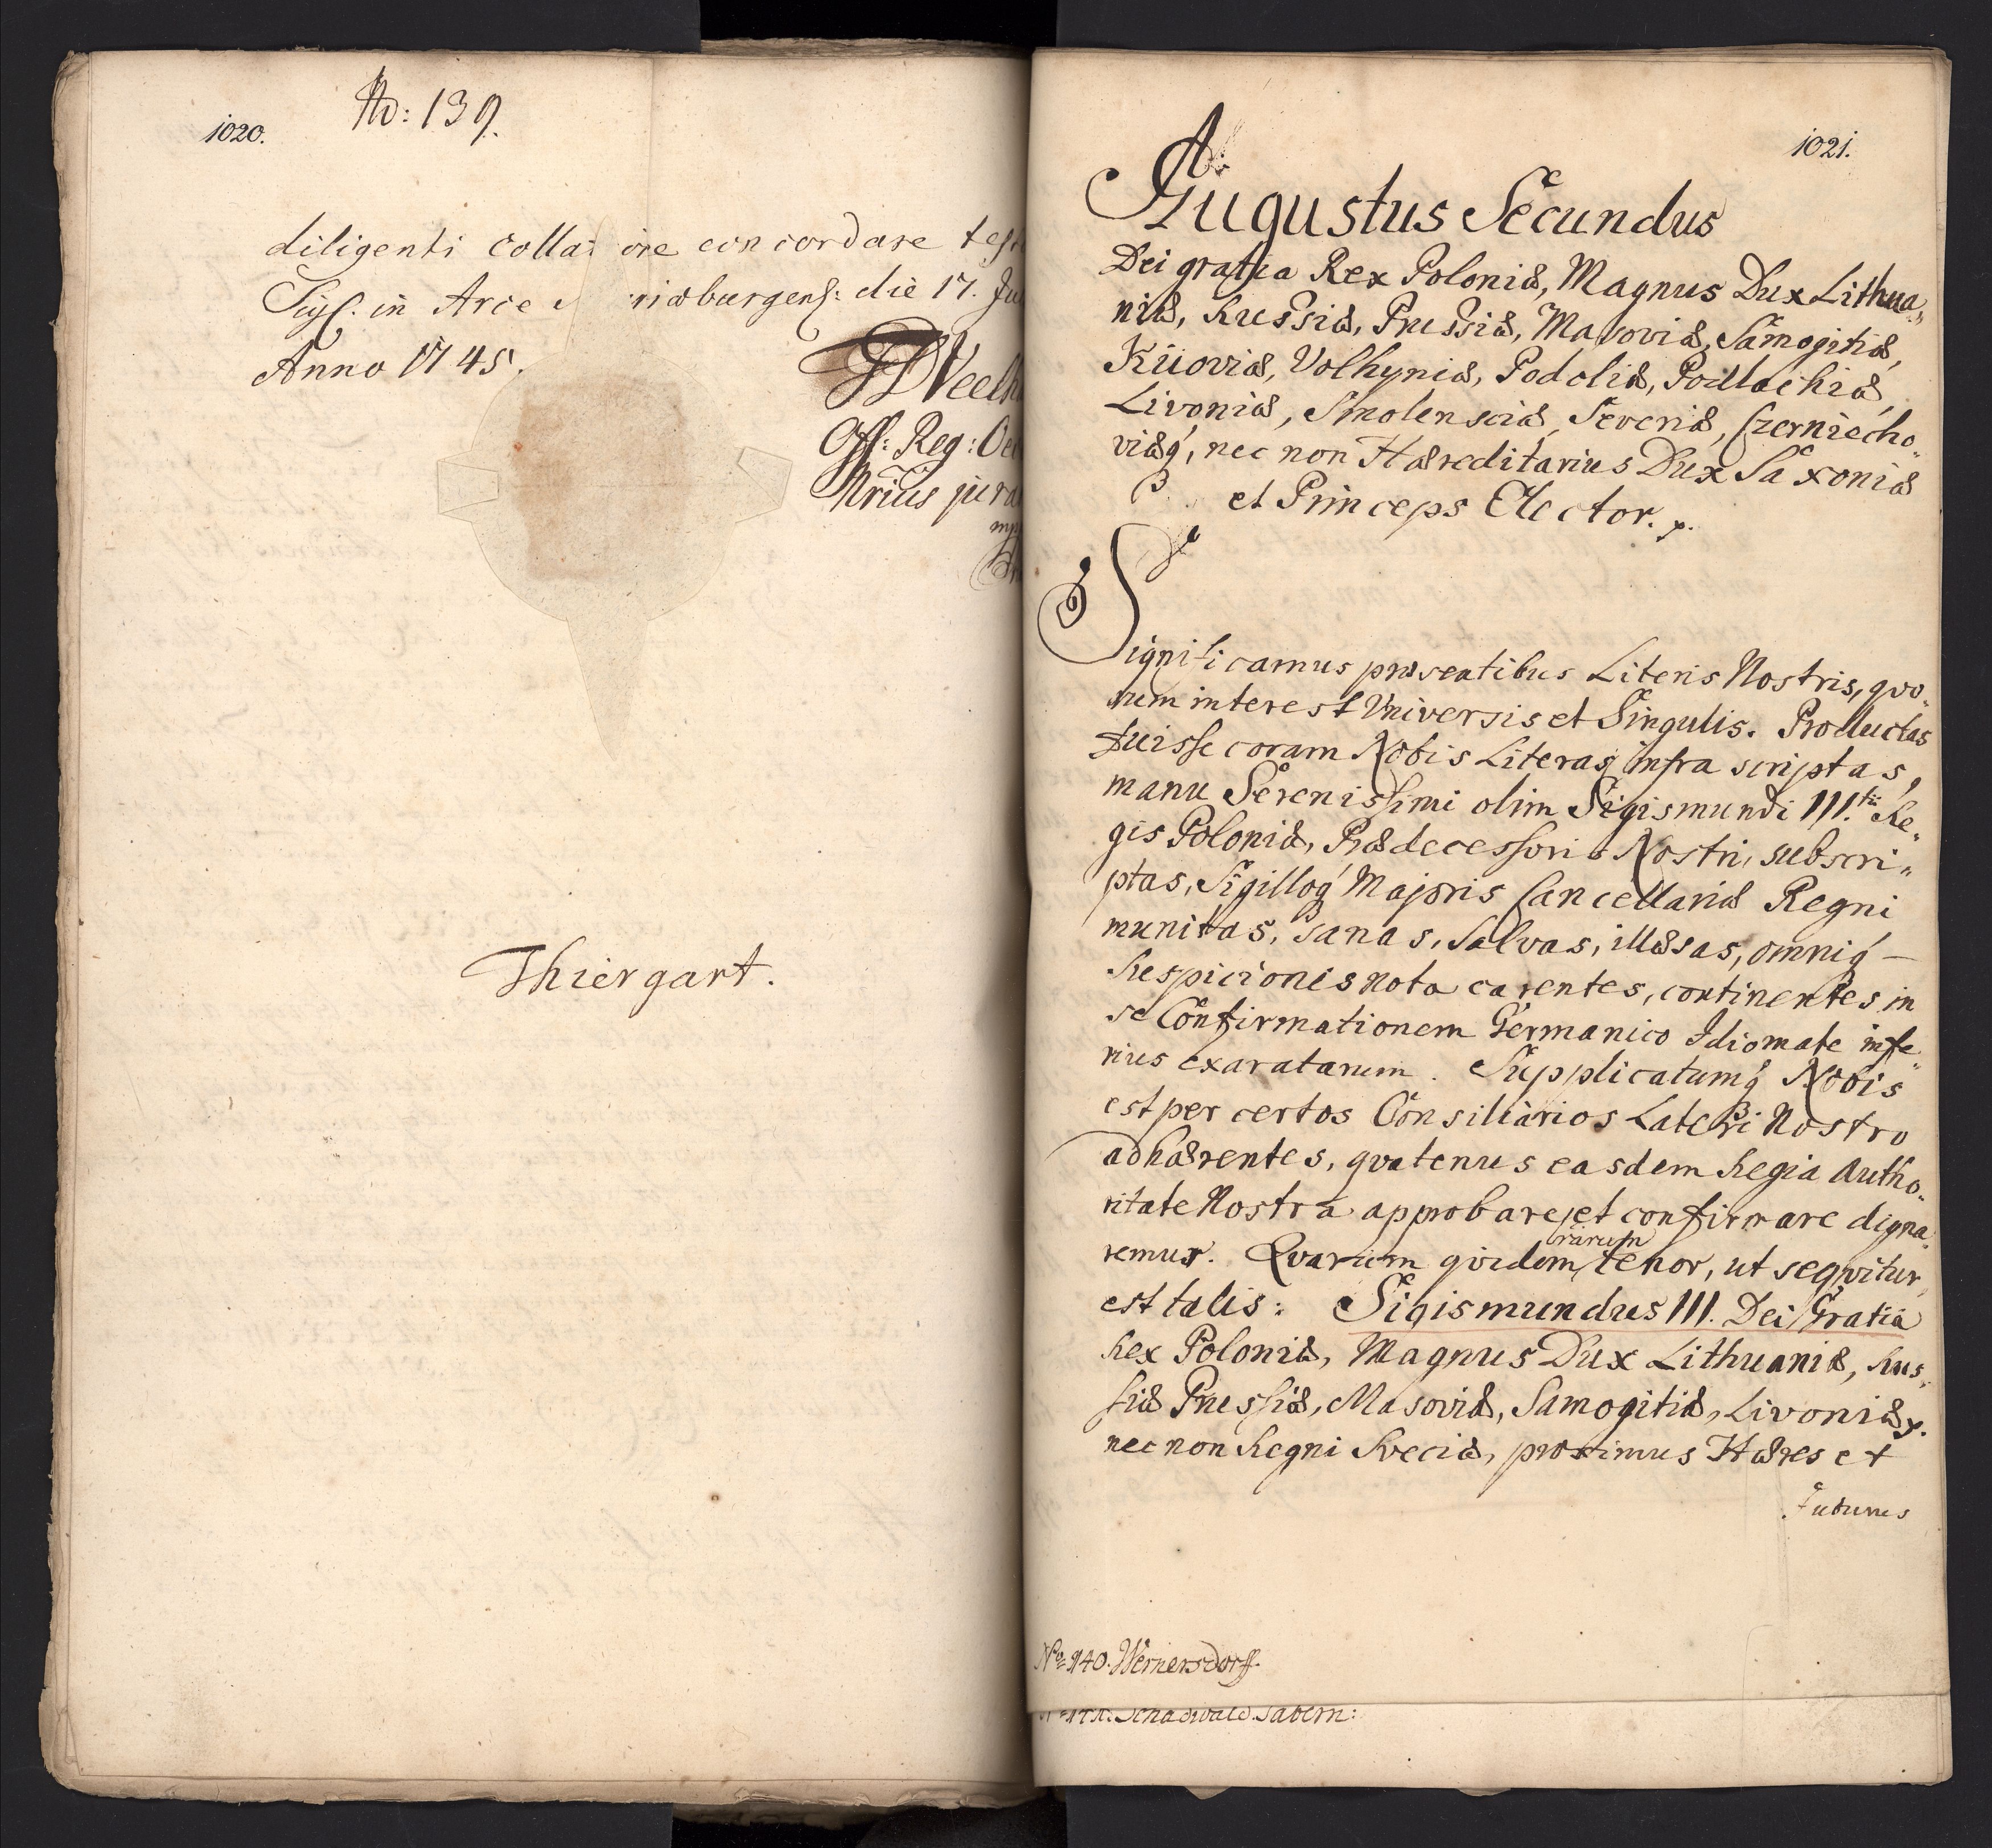 1020.
No: 139.
diligenti colla ore concordare
Sigs. in Arce riæburgens: die 17.
Anno 1745.
Off: Reg:
Thiergart.
1021.
A:
Augustus Secundus
Dei gratia Rex Poloniæ, Magnus Dux Lithua„
niæ, Russiæ, Prussiæ, Masoviæ, Samogitiæ,
Kijoviæ, Volhyniæ, Podoliæ, Podlachiæ,
Livoniæ, Smolensciæ, Severiæ, Czerniecho„
viæq, nec non Hæreditarius Dux Saxoniæ
et Princeps Elector.
Significamus præsentibus Literis Nostris, qvo„
rum interest Universis et Singulis. Productas
fuisse coram Nobis Literas infra scriptas,
manu Serenissimi olim Sigismundi III.tii Re„
gis Poloniæ, Prædecessoris Nostri, subscri„
ptas, Sigilloq Majoris Cancellariæ Regni
munitas, sanas, salvas, illæsas, omniq —
suspicionis nota carentes, continentes in
se Confirmationem Germanico Idiomate infe„
rius exaratarum. Supplicatumq Nobis
est per certos Consiliarios Lateri Nostro
adhærentes, qvatenus easdem Regia Autho„
ritate Nostra approbare, et confirmare digna„
rarum
remur. Qvarum qvidem tenor, ut seqvitur,
est talis: Sigismundus III. Dei Gratia
Rex Poloniæ, Magnus Dux Lithuaniæ, Rus„
siæ Prussiæ, Masoviæ, Samogitiæ, Livoniæ
nec non Regni Sveciæ, proximus Hæres et
futurus
No 140. Wernersdorff.